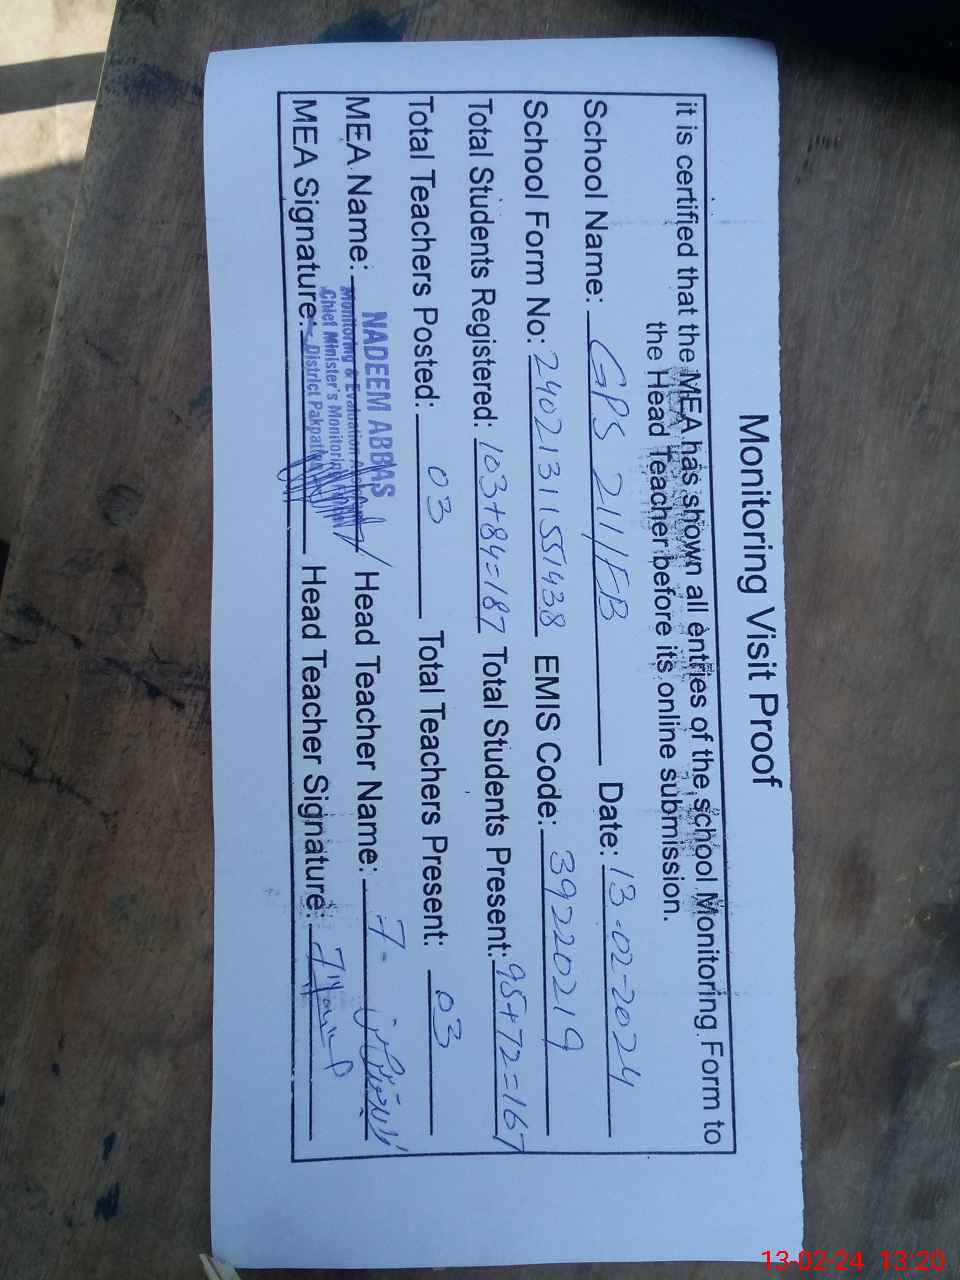 Monitoring Visit Proof
it is certified that the MEA has shown all entries of the school Monitoring Form to
the Head Teacher before its online submission.
School Name: GPS 211/EB Date: 13-02-2024
School Form No: 240213115551438 EMIS Code: 39220219
Total Students Registered: 103+84=187 Total Students Present: 95+72=167
Total Teachers Posted: 03 Total Teachers Present: 03
MEA Name: NADEEM ABBAS Head Teacher Name:
Monitoring & Evaluation
Chief Minister's Monitoring
District Pakpattan
MEA Signature: Head Teacher Signature:
13-02-24 13:20